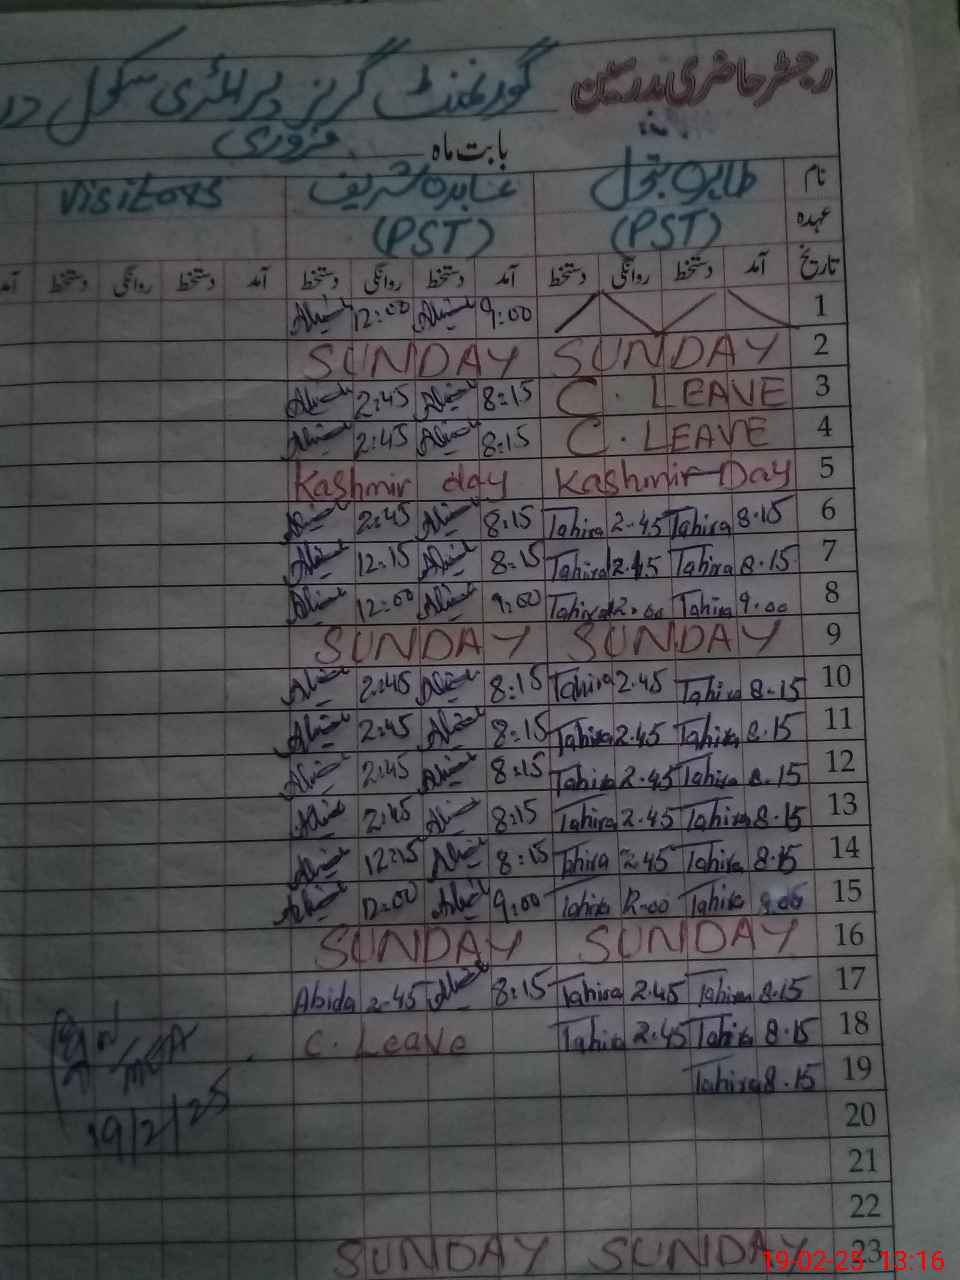 رجسٹر حاضری مدرسین گورنمنٹ گرلز پرائمری سکول
بابت ماہ فروری
نام طاہرہ بتول عابدہ شریف Visitors
عہدہ (PST) (PST)
تاریخ آمد دستخط روانگی دستخط آمد دستخط روانگی دستخط آمد دستخط روانگی دستخط آمد
1 9:00 12:00
2 SUNDAY SUNDAY
3 C. LEAVE 8:15 2:45
4 C. LEAVE 8:15 2:45
5 Kashmir Day Kashmir day
6 8.15 Tahira 2.45 Tahira 8:15 2:45
7 8.15 Tahira 2.45 Tahira 8:15 12:15
8 9.00 Tahira 12.00 Tahira 9:00 12:00
9 SUNDAY SUNDAY
10 8.15 Tahira 2.45 Tahira 8:15 2:45
11 8.15 Tahira 2.45 Tahira 8:15 2:45
12 8.15 Tahira 2.45 Tahira 8:15 2:45
13 8.15 Tahira 2.45 Tahira 8:15 2:45
14 8.15 Tahira 2.45 Tahira 8:15 12:15
15 9.00 Tahira 12.00 Tahira 9:00 12:00
16 SUNDAY SUNDAY
17 8.15 Tahira 2.45 Tahira 8:15 2.45 Abida
18 8.15 Tahira 2.45 Tahira C. Leave
19 8.15 Tahira
19/2/25
20
21
22
23 SUNDAY SUNDAY
19-02-25 13:16